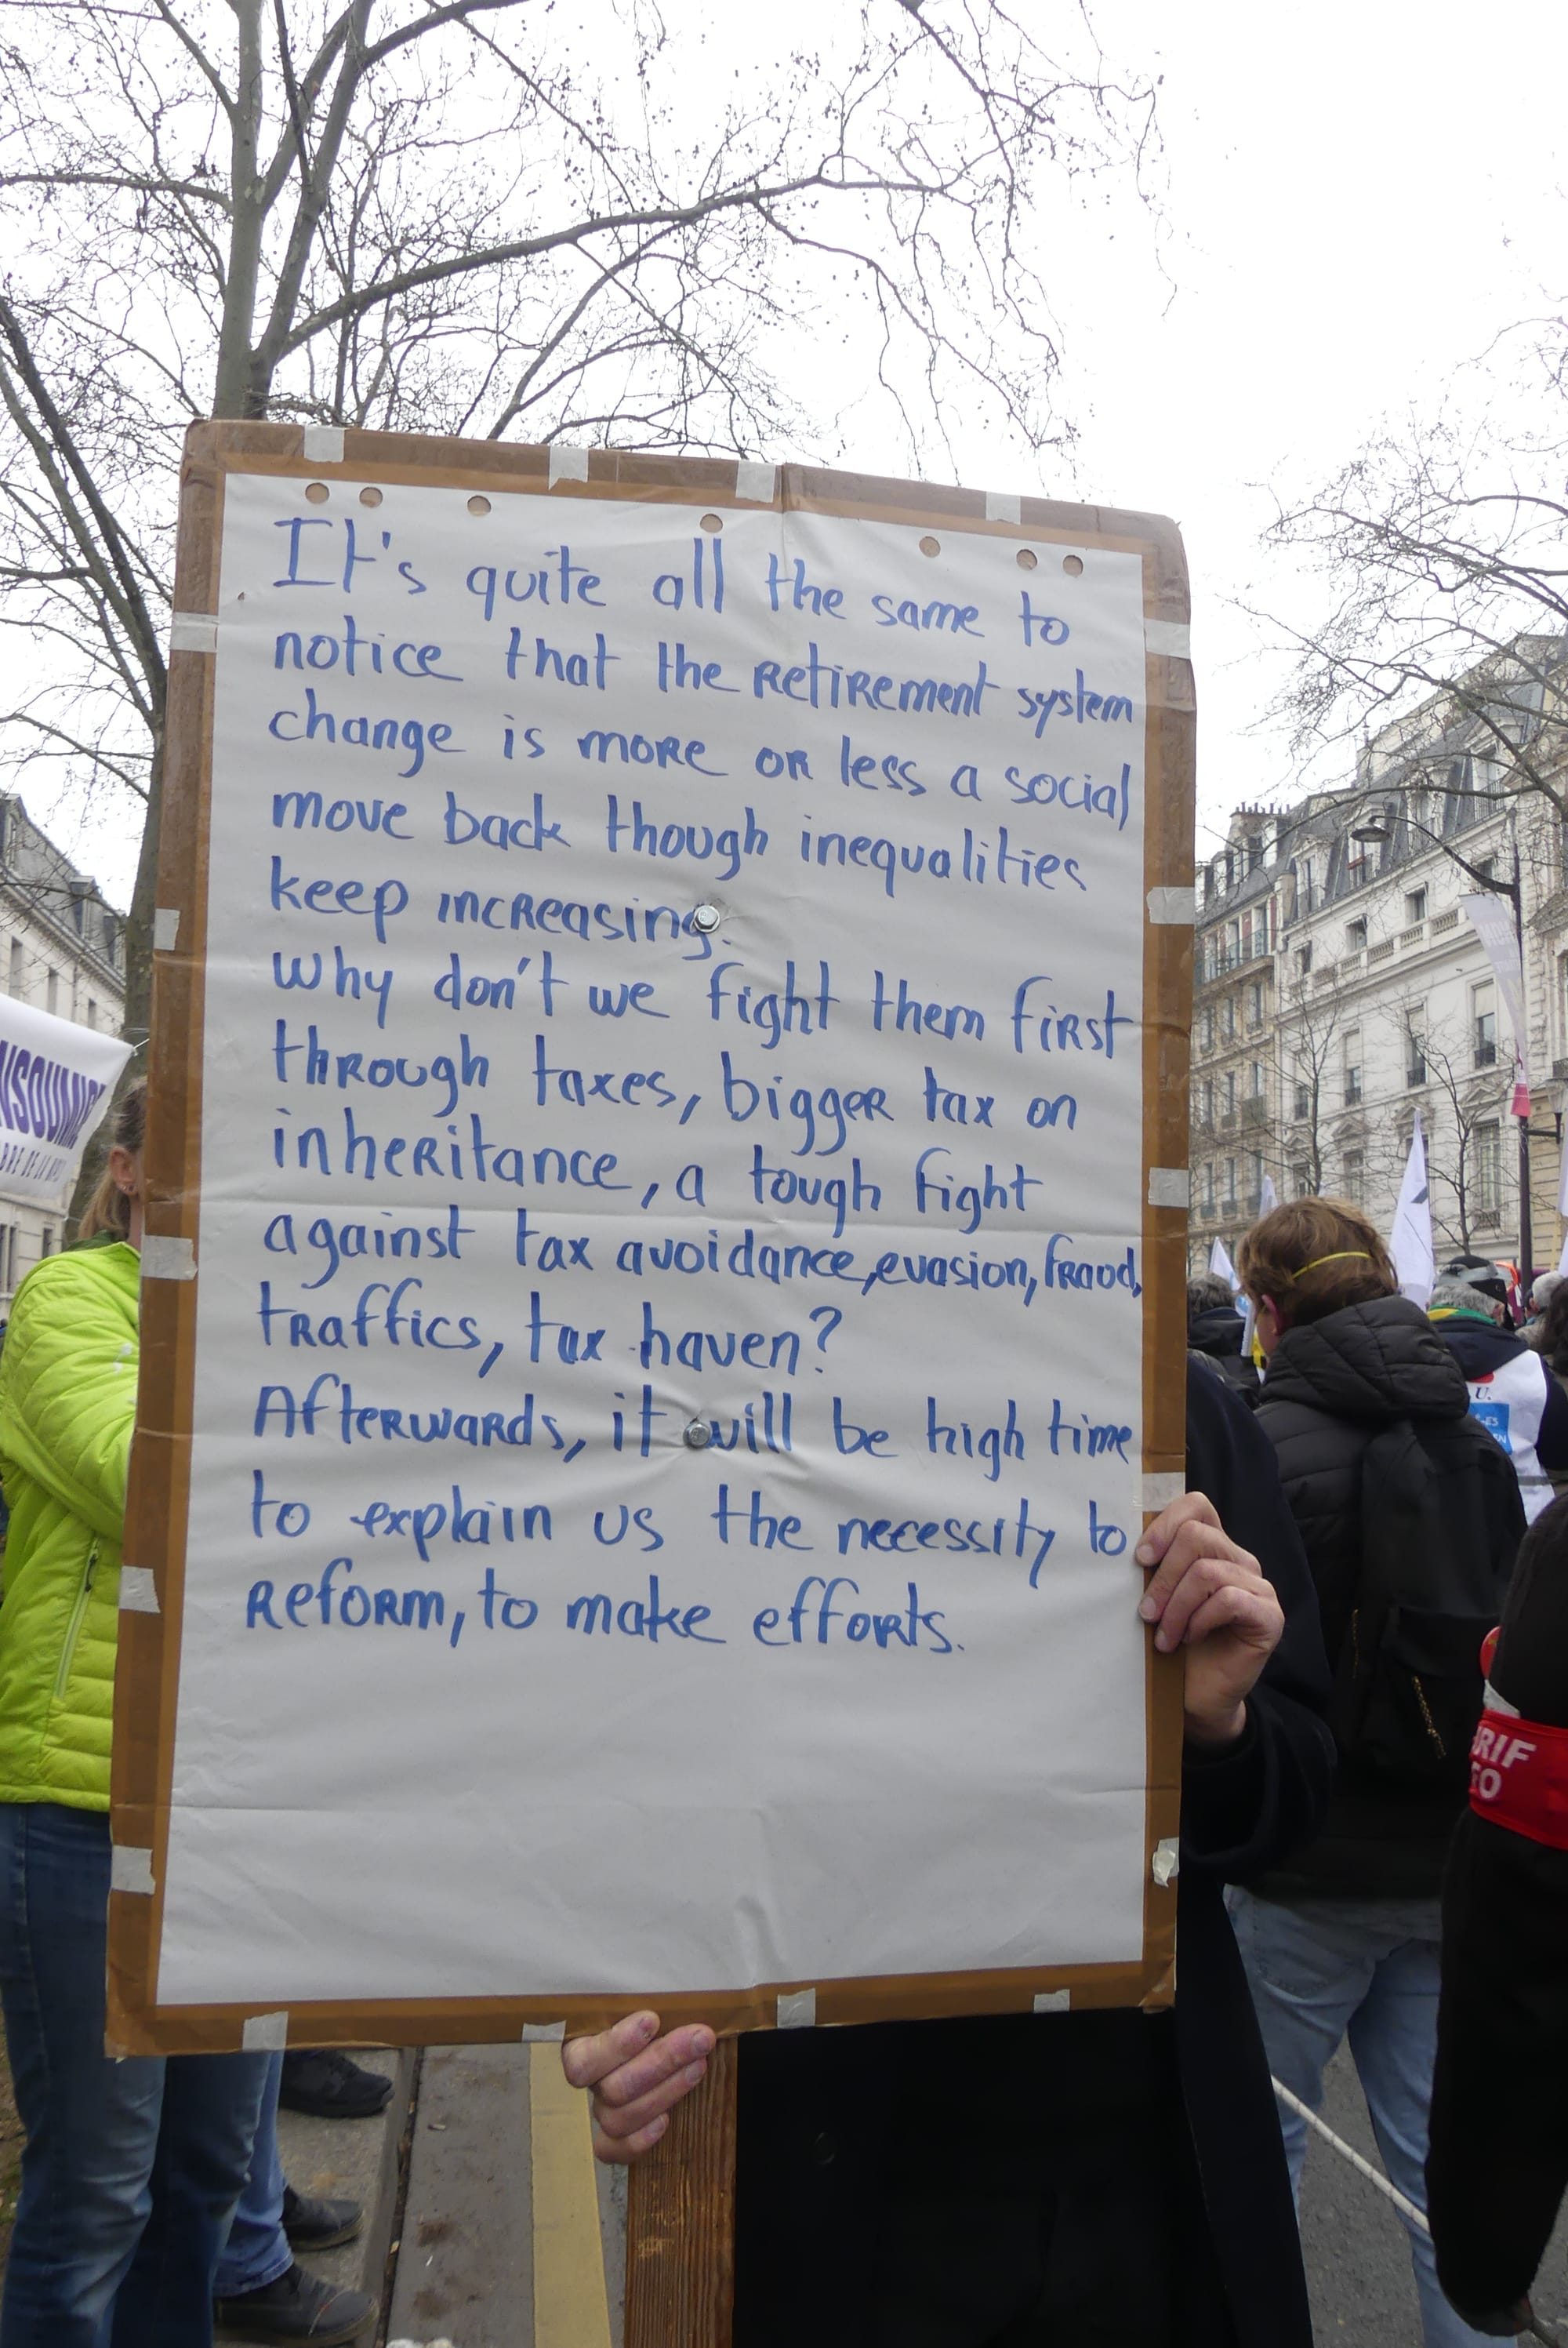 It's quite all the same to
notice that the retirement system
change is more or less a social
move back though inequalities
keep increasing.
Why don't we fight them first
through taxes, bigger tax on
inheritance, a tough fight
against tax avoidance, evasion, fraud,
traffics, tax haven?
Afterwards, it will be high time
to explain us the necessity to
reform, to make efforts.
U.